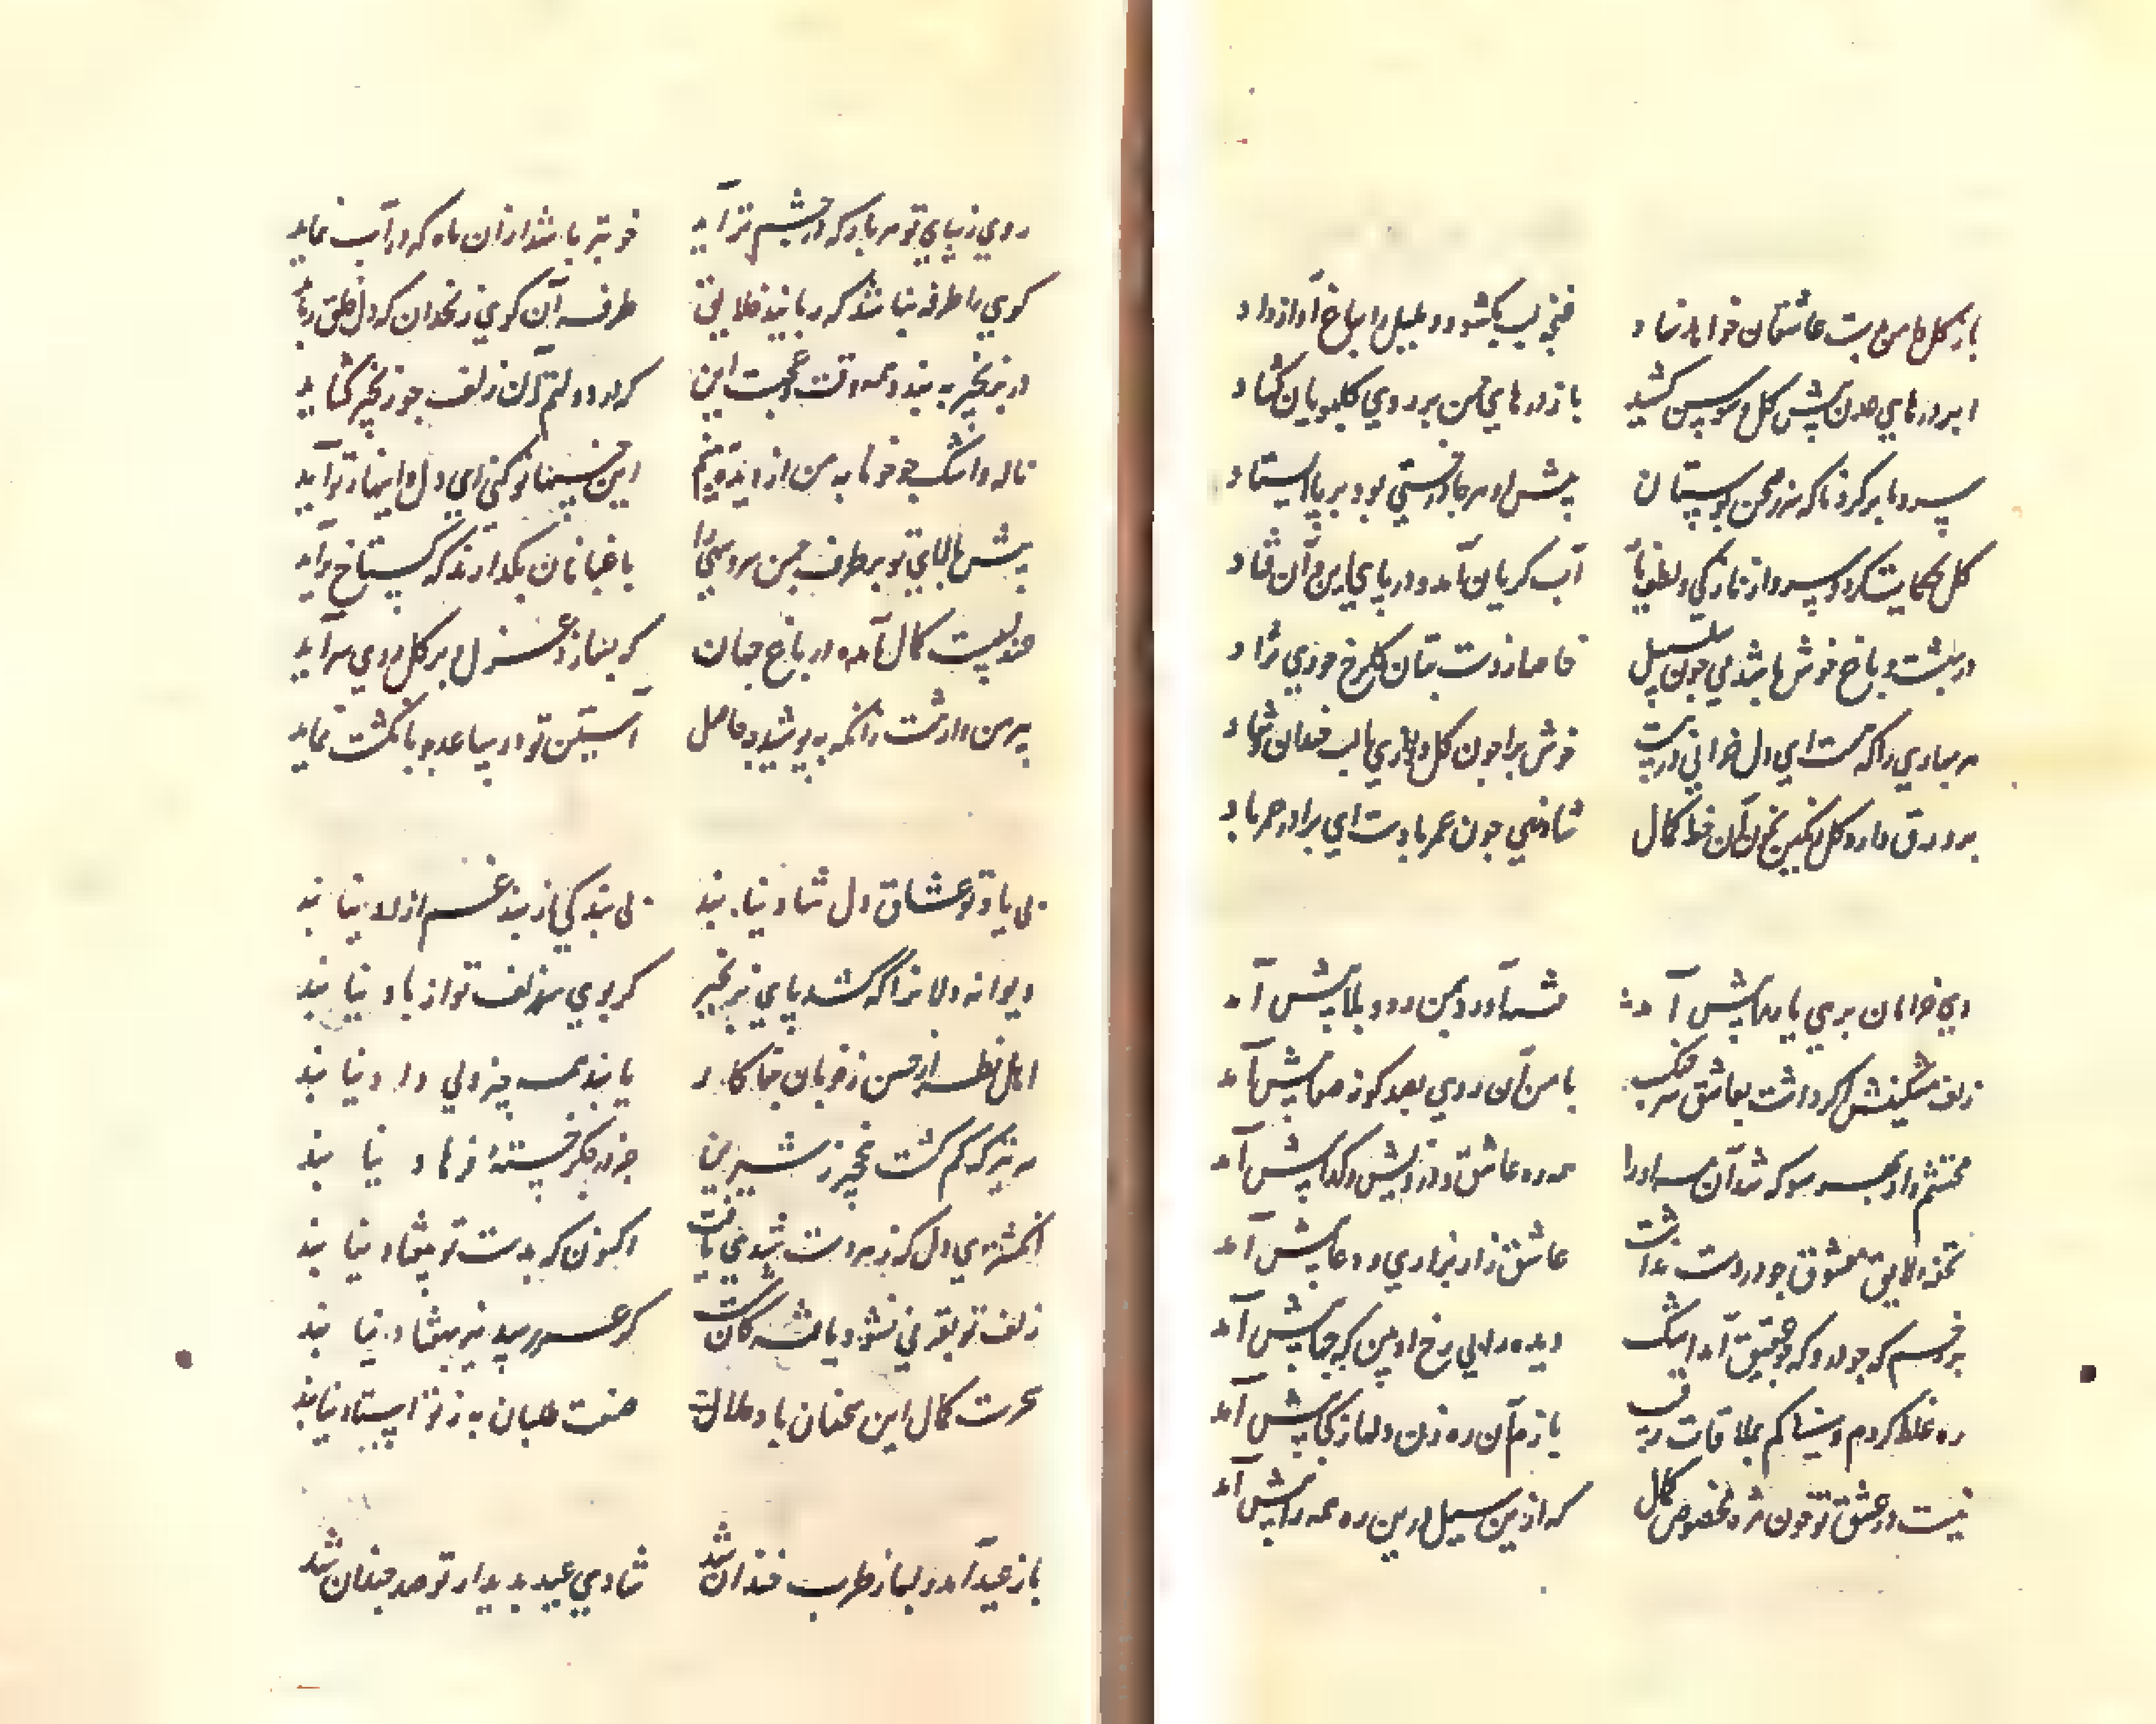 باز گل دامن بدست عاشقان خواهد نهاد
غنچه لب بگشود و بلبل را بباغ آواز داد
ابر درهای عدن پیش گل و سوسن کشید
باز درهای چمن بر روی گلبویان گشاد
سر و ما بر کرد ناگه سر ز صحن بوستان
پیش او هر جا درختی بود بر پا ایستاد
گل حکایت کرد و سرو از نازکی و لطف یار
آب گریان آمد و در پای این و آن فتاد
در بهشت و باغ خوش باشد می چون سلسبیل
خاصه از دست بتان گلرخ حوری نژاد
هر بهاری را که هست ای دل خزانی در پیست
خوش برا چون گل دو روزی با لب خندان و شاد
بر ورق دارد گل رنگین بخون آن خط کمال
شاد زی چون عمر بادست ای برادر هر چه باد
دی خرامان برهی یار مرا پیش آمد
فتنه آورد بمن رو و بلا پیش آمد
زلف مشکینش اگر داشت بعاشق سر جنگ
با من آن روی بعد گونه صفا پیش آمد
محتشم وار بهر سو که شد آن مه او را
همه ره عاشق و درویش و گدا پیش آمد
تحفه لایق معشوق چو در دست نداشت
عاشق زار بزاری و دعا پیش آمد
بر رخم گر چه دود گه بحقیقت آمد اشک
دیده را بی رخ او بین که چها پیش آمد
ره غلط کردم و شبها کم بملاقات رقیب
بازم آن ره زن دلها ز کجا پیش آمد
نیست در عشق تو خون مژه مخصوص کمال
که ازین سیل درین ره همه را پیش آمد
روی زیبای تو هر بار که در چشم تر آید
خوبتر باشد از آن ماه که در آب نماید
گوی را طرفه نباشد که ربایند خلایق
طرفه آن گوی زنخدان که دل خلق رباید
در بزنجیر ببندد همه وقت و عجبست این
کرد در دلم آن زلف چو زنجیر گشاید
ناله و اشک چو خونابه من از دیده بینم
این چنینها تو کنی ای دل و اینها ز تو آید
پیش بالای تو بر طرف چمن سرو سهی را
باغبانان بگذارند که گستاخ برآید
عندلیبست کمال آمده در باغ جهان
گر بنازد غزلی بر گل روی سراید
پیرهن وار تنت زانکه بپوشید چه حاصل
آستین تو و ساعد چو بانگشت نماید
بی یاد تو عشاق دل شاد نیابند
بی بندگی از بند غم آزاد نیابند
دیوانه دلان را که کشد پای بزنجیر
گر بوی سر زلف تو از باد نیابند
اهل نظر از حسن ز خوبان جفا کار
یابند همه چیز ولی داد نیابند
هر تیر که کم گشت بنخچیر ز شیرین
جز در جگر خسته فرهاد نیابند
انگشتری دل که ز هر دست شدی یافت
اکنون که بدست تو بیفتاد نیابند
زلف تو بقربی نشود یافته کان شست
گر عمر رسد نیز بهفتاد نیابند
سحرست کمال این سخنان یاد ملالت
صنعت طلبان به ز تو استاد نیابند
باز عید آمد و لبها ز طرب خندان شد
شادی عید بدیدار تو صد چندان شد